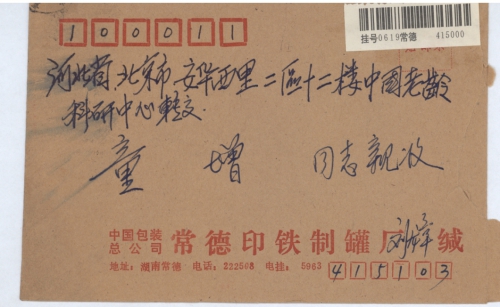 挂号0619常德 415000
100011
河北省北京市安华西里二區十二楼中國老龄
科研中心转交
童 增 同志親收
中国包装
总公司 常德印铁制罐厂 刘 缄
地址：湖南常德 电话：222508 电挂：5963 415103